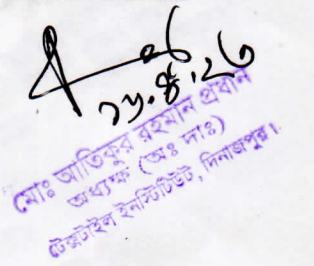 ১৮.৪.২৩
মোঃ আতিকুর রহমান প্রধান
অধ্যক্ষ (অঃ দাঃ)
টেক্সটাইল ইনস্টিটিউট, দিনাজপুর।